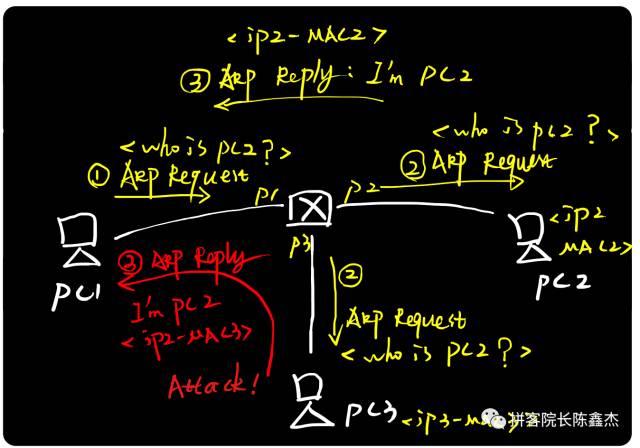 <ip2-MAC2>
③ Arp Reply: I'm PC2
<who is pc2?>
① Arp Request
<who is pc2?>
② Arp Request
p1
p2
p3
<ip2
MAC2>
PC1
PC2
③ Arp Reply
I'm PC2
<ip2-MAC3>
Attack!
②
Arp Request
<who is PC2?>
PC3
<ip3-
拼客院长陈鑫杰